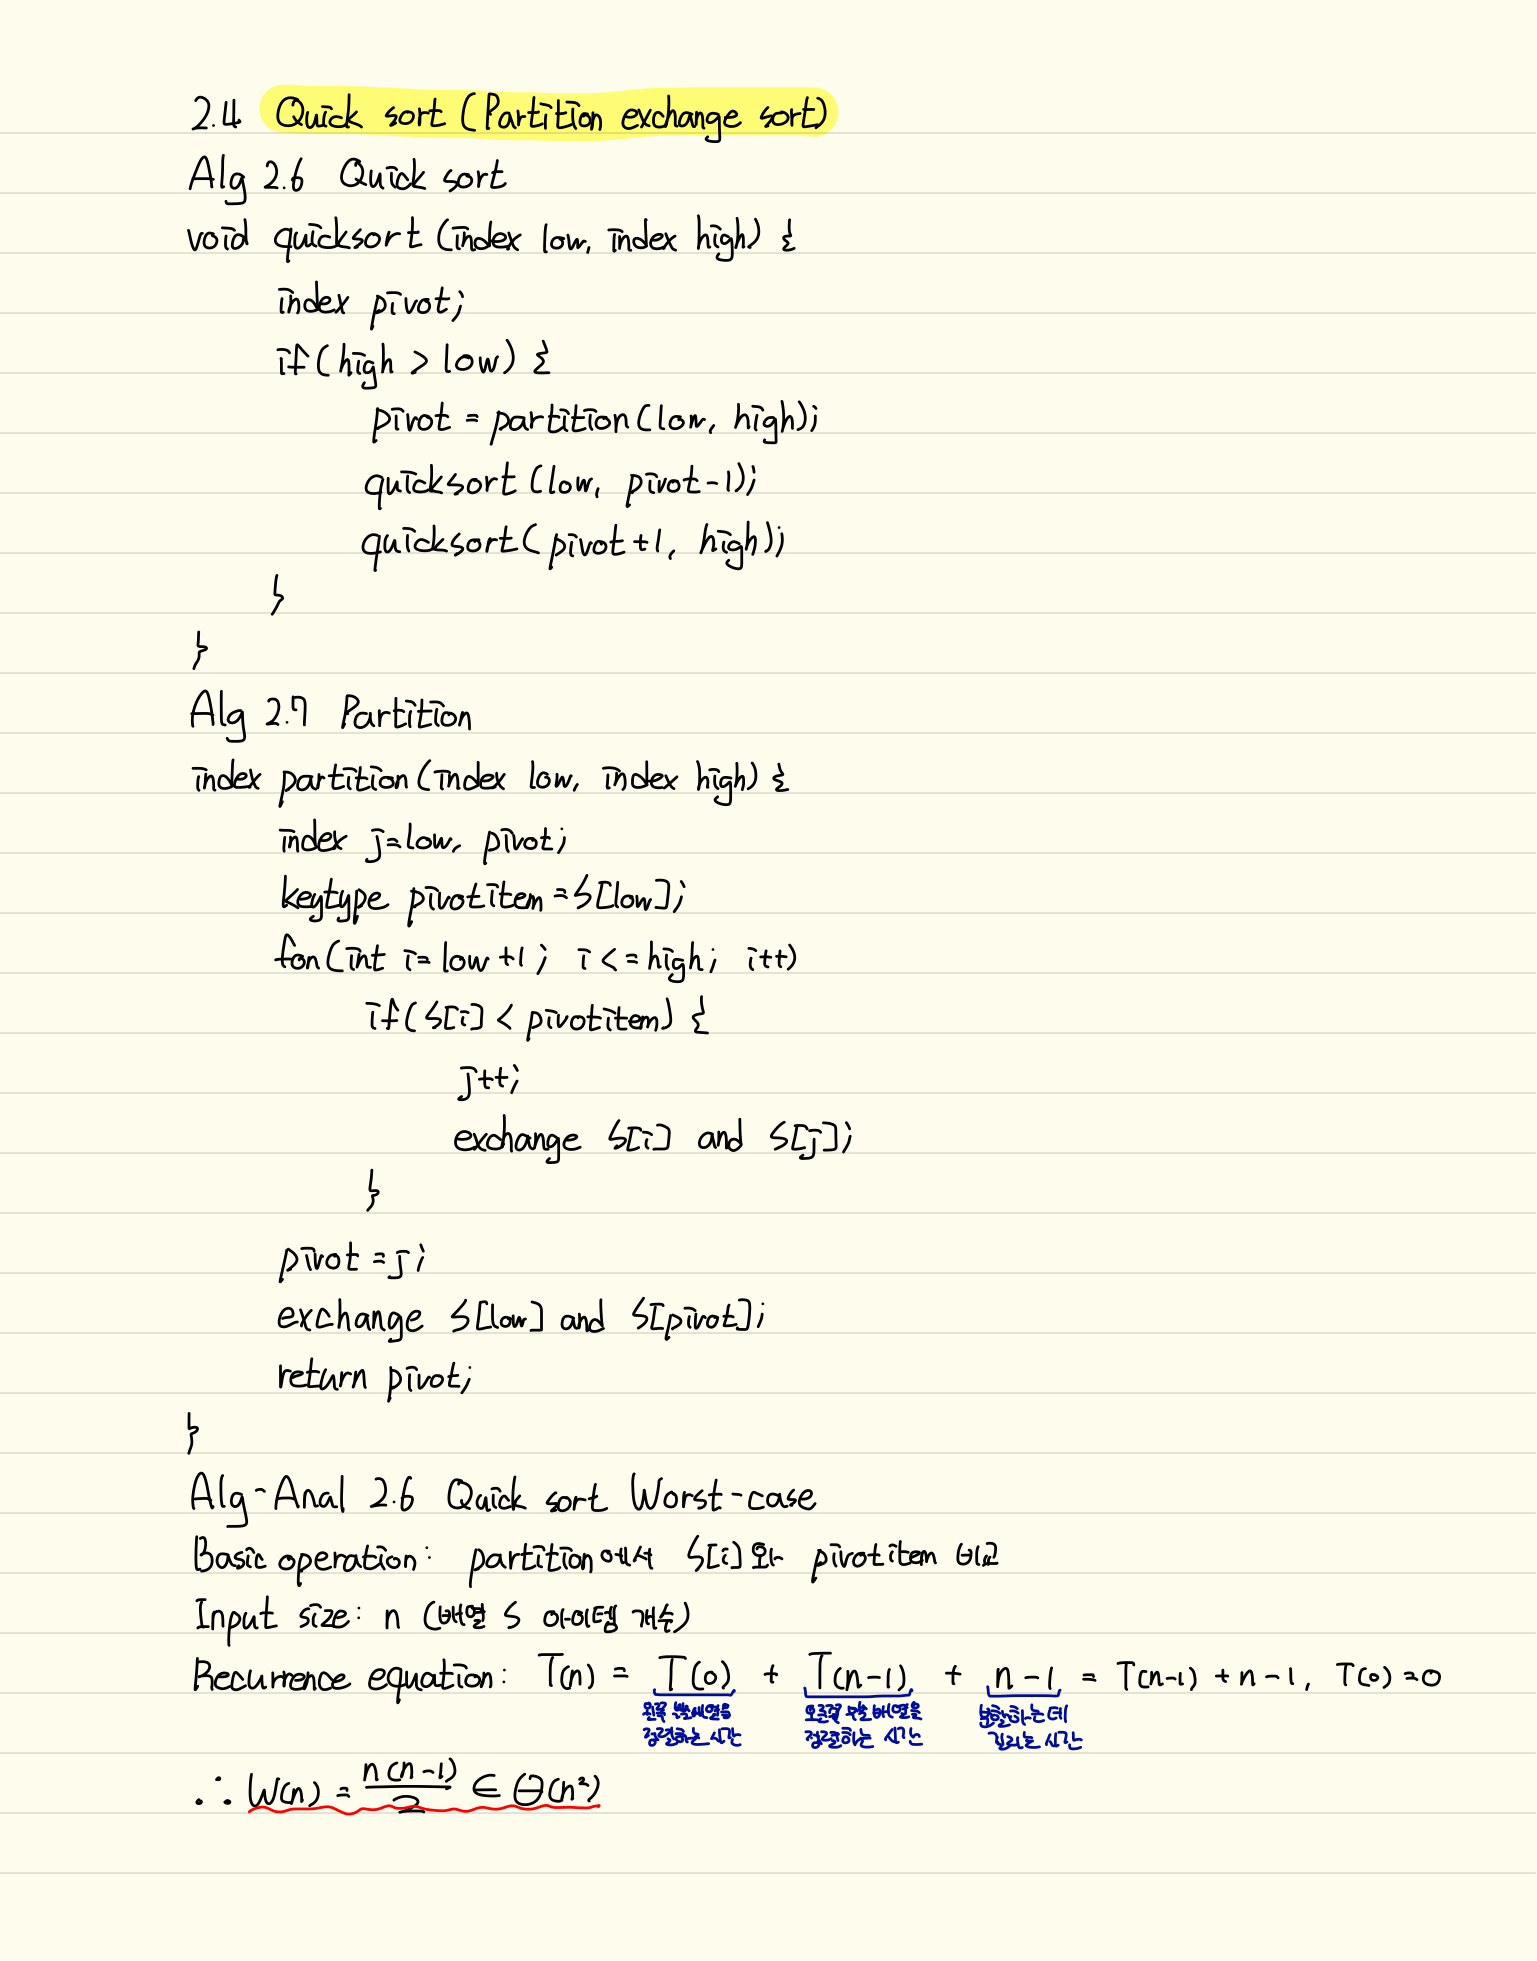 2.4 Quick sort (Partition exchange sort)
Alg 2.6 Quick sort
void quicksort (index low, index high) {
index pivot;
if (high > low) {
pivot = partition (low, high);
quicksort (low, pivot-1);
quicksort (pivot+1, high);
}
}
Alg 2.7 Partition
index partition (index low, index high) {
index j=low, pivot;
keytype pivotitem = S[low];
for (int i = low +1; i <= high; i++)
if (S[i] < pivotitem) {
j++;
exchange S[i] and S[j];
}
pivot = j;
exchange S[low] and S[pivot];
return pivot;
}
Alg-Anal 2.6 Quick sort Worst-case
Basic operation: partition에서 S[i]와 pivotitem 비교
Input size: n (배열 S 아이템 개수)
Recurrence equation: T(n) = T(0) + T(n-1) + n-1 = T(n-1) + n-1, T(0) = 0
왼쪽 부분배열을 정렬하는 시간
오른쪽 부분배열을 정렬하는 시간
분할하는 데 걸리는 시간
∴ W(n) = n(n-1)/2 ∈ Θ(n²)